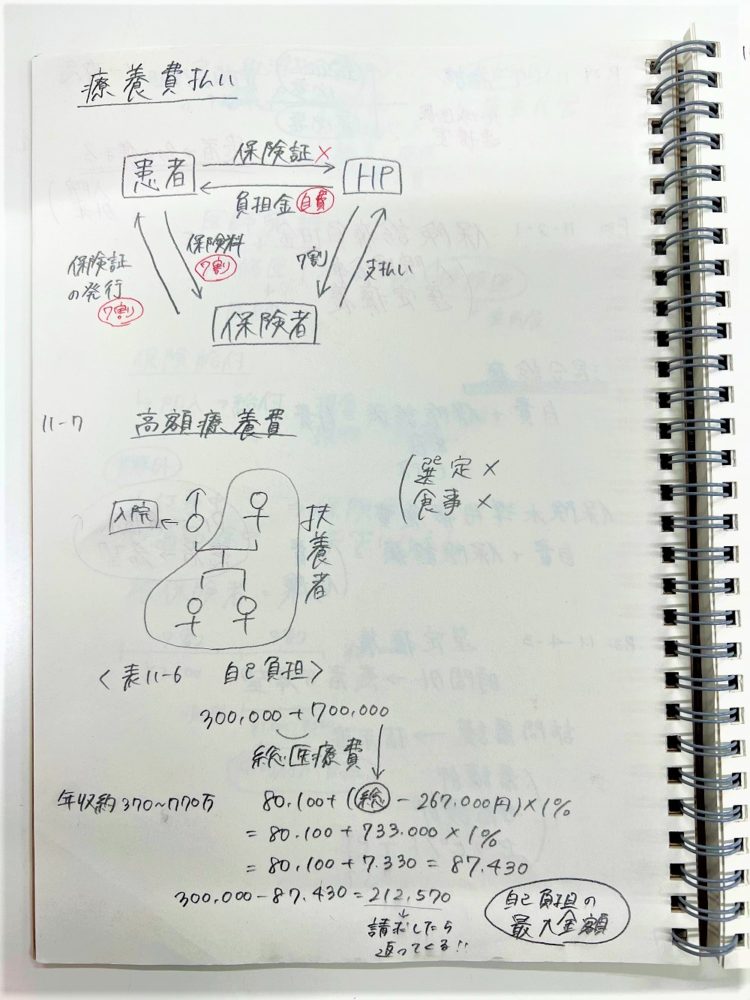 療養費払い
保険証×
患者
HP
負担金 自費
保険証
の発行
7割
保険料
7割
7割
支払い
保険者
11-7 高額療養費
選定×
食事×
入院
扶養者
〈表11-6 自己負担〉
300,000+700,000
総医療費
年収約370~770万 80.100+(総-267.000円)×1%
=80.100+733.000×1%
=80.100+7.330=87.430
300,000-87.430=212,570
請求したら
返ってくる!!
自己負担の
最大金額